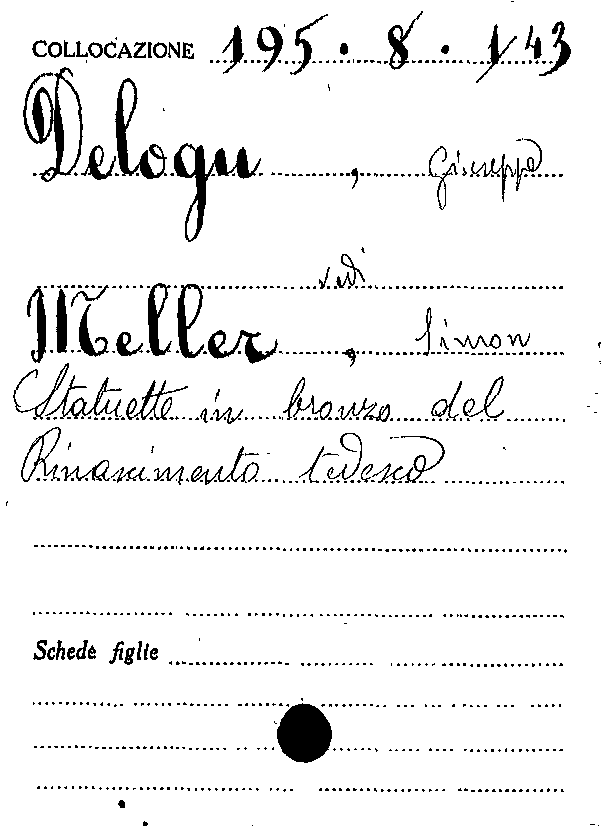 COLLOCAZIONE 195.8.143
Delogu, Giuseppe
vedi
Meller, Simon
Statuette in bronzo del
Rinascimento tedesco
Schede figlie